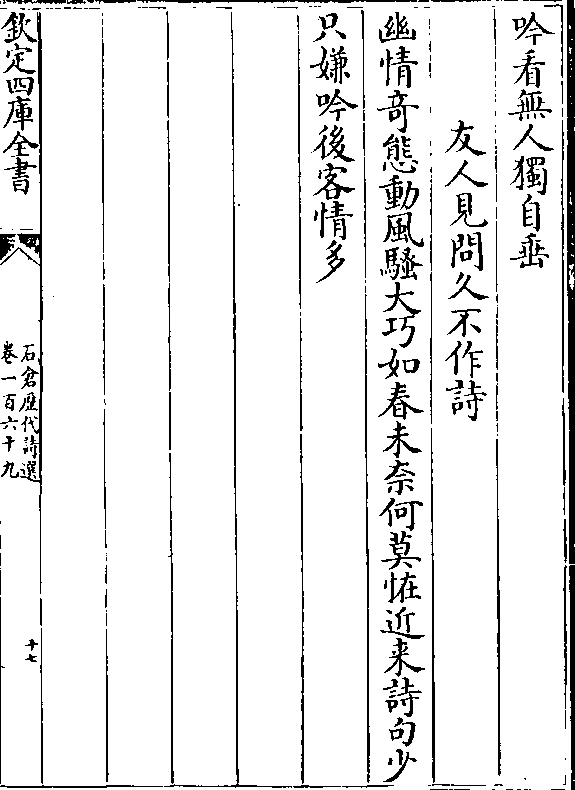 吟看無人獨自垂
友人見問久不作詩
幽情奇態動風騷大巧如春未奈何莫怪近来詩句少
只嫌吟後客情多
欽定四庫全書
石倉歷代詩選
卷一百六十九
十七